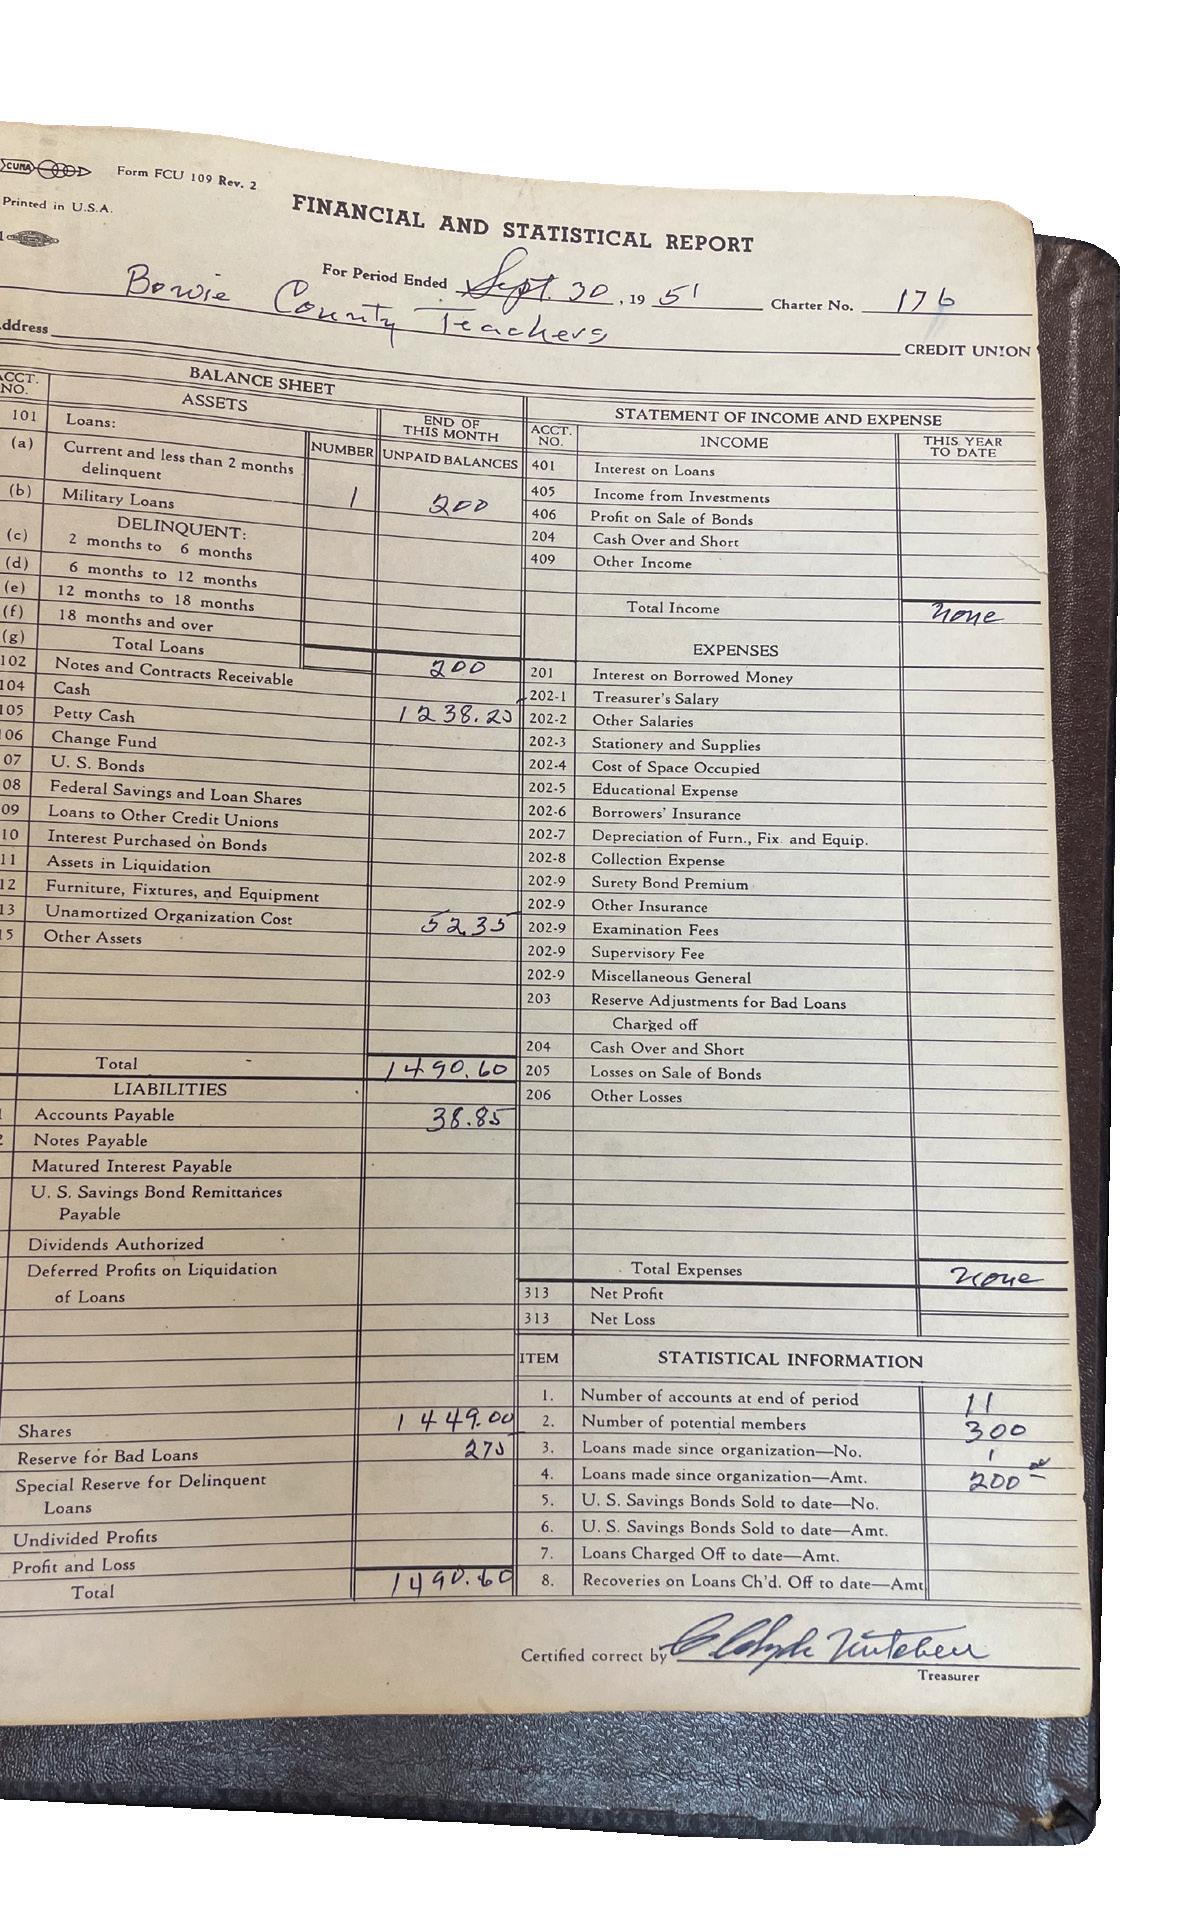 CUNA Form FCU 109 Rev. 2
Printed in U.S.A.
FINANCIAL AND STATISTICAL REPORT
For Period Ended Sept. 30, 1951 Charter No. 176
Bowie County Teachers
CREDIT UNION
ddress
BALANCE SHEET
ACCT. NO. ASSETS END OF THIS MONTH
101 Loans: NUMBER UNPAID BALANCES
(a) Current and less than 2 months
delinquent
(b) Military Loans 1 200
DELINQUENT:
(c) 2 months to 6 months
(d) 6 months to 12 months
(e) 12 months to 18 months
(f) 18 months and over
(g) Total Loans 200
102 Notes and Contracts Receivable
104 Cash 1238.25
105 Petty Cash
106 Change Fund
07 U. S. Bonds
08 Federal Savings and Loan Shares
09 Loans to Other Credit Unions
10 Interest Purchased on Bonds
11 Assets in Liquidation
12 Furniture, Fixtures, and Equipment
13 Unamortized Organization Cost 52.35
15 Other Assets
Total 1490.60
LIABILITIES
Accounts Payable 38.85
2 Notes Payable
Matured Interest Payable
U. S. Savings Bond Remittances
Payable
Dividends Authorized
Deferred Profits on Liquidation
of Loans
Shares 1449.00
Reserve for Bad Loans 275
Special Reserve for Delinquent
Loans
Undivided Profits
Profit and Loss
Total 1490.60
STATEMENT OF INCOME AND EXPENSE
ACCT. NO. INCOME THIS YEAR TO DATE
401 Interest on Loans
405 Income from Investments
406 Profit on Sale of Bonds
204 Cash Over and Short
409 Other Income
Total Income none
EXPENSES
201 Interest on Borrowed Money
202-1 Treasurer's Salary
202-2 Other Salaries
202-3 Stationery and Supplies
202-4 Cost of Space Occupied
202-5 Educational Expense
202-6 Borrowers' Insurance
202-7 Depreciation of Furn., Fix. and Equip.
202-8 Collection Expense
202-9 Surety Bond Premium
202-9 Other Insurance
202-9 Examination Fees
202-9 Supervisory Fee
202-9 Miscellaneous General
203 Reserve Adjustments for Bad Loans
Charged off
204 Cash Over and Short
205 Losses on Sale of Bonds
206 Other Losses
Total Expenses none
313 Net Profit
313 Net Loss
ITEM STATISTICAL INFORMATION
1. Number of accounts at end of period 11
2. Number of potential members 300
3. Loans made since organization—No. 1
4. Loans made since organization—Amt. 200 00
5. U. S. Savings Bonds Sold to date—No.
6. U. S. Savings Bonds Sold to date—Amt.
7. Loans Charged Off to date—Amt.
8. Recoveries on Loans Ch'd. Off to date—Amt
Certified correct by
Treasurer